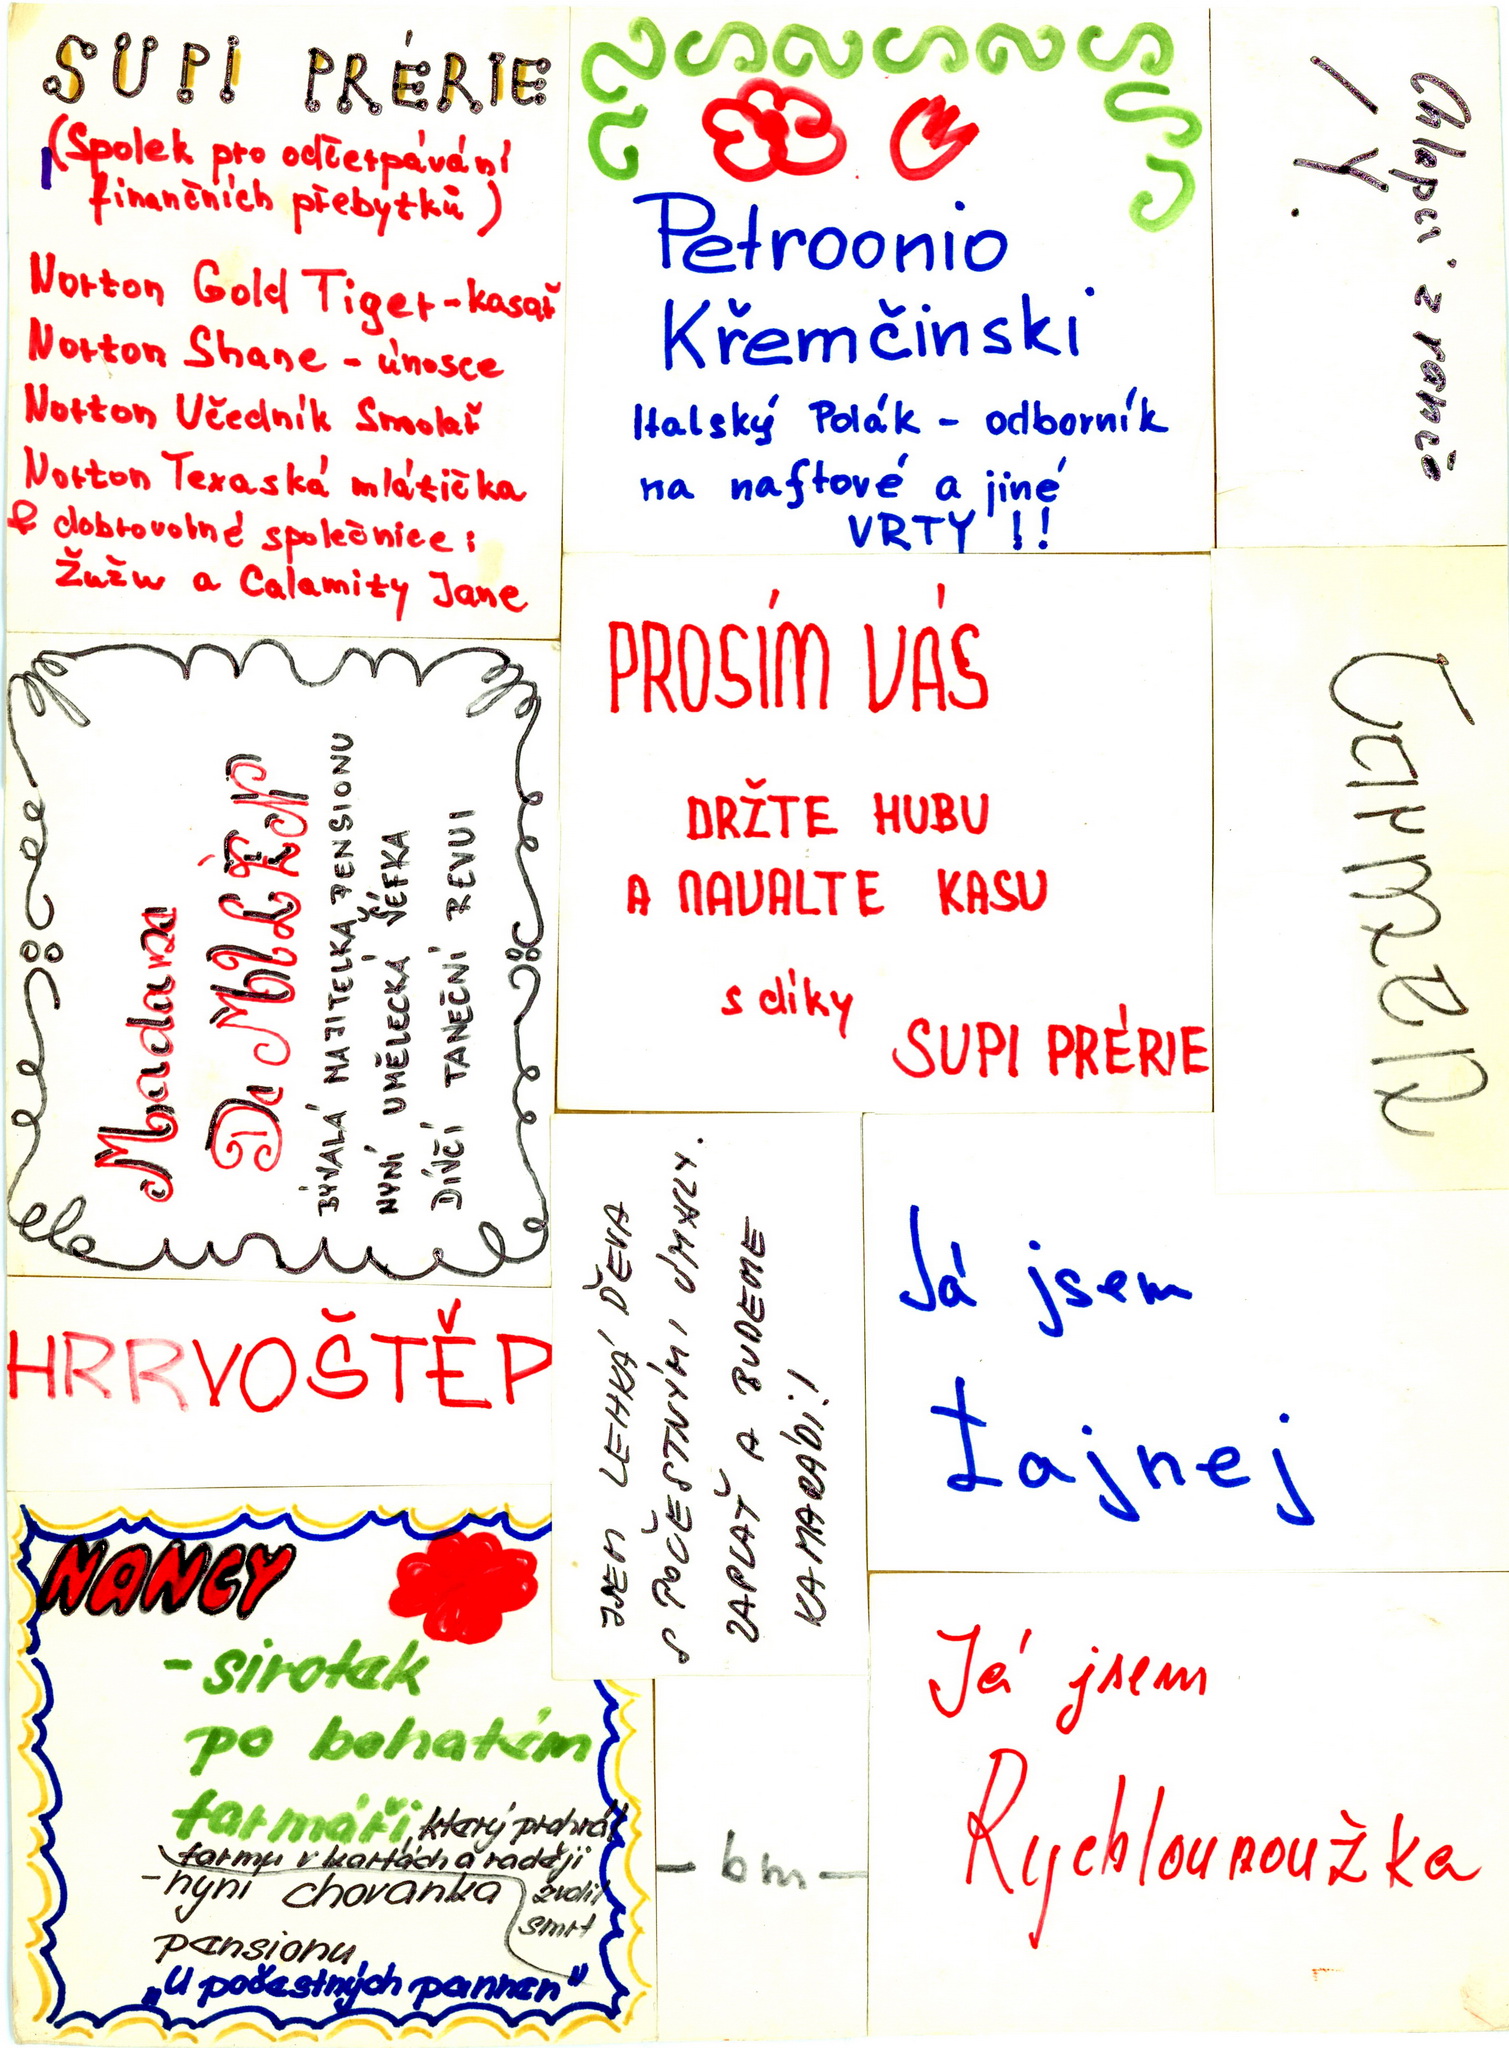 SUPI PRÉRIE
(Spolek pro odčerpávání
finančních přebytků)
Norton Gold Tiger - kasař
Norton Shane - únosce
Norton Učedník Smolař
Norton Texaská mlátička
& dobrovolné společnice:
Žužu a Calamity Jane
Petroonio
Křemčinski
Italský Polák - odborník
na naftové a jiné
VRTY !!
Chlapci z ranče
/ Y.
Madam
De MILÉN
BÝVALÁ MAJITELKA PENSIONU
NYNÍ UMĚLECKÁ ŠÉFKA
DÍVČÍ TANEČNÍ REVUI
PROSÍM VÁS
DRŽTE HUBU
A NAVALTE KASU
s díky
SUPI PRÉRIE
Carmen
HRRVOŠTĚP
JSEM LEHKÁ DĚVA
S POČESTNÝMI ÚMYSLY.
ZAPLAŤ A BUDEME
KAMARÁDI!
Já jsem
tajnej
NANCY
- sirotek
po bohatém
farmáři, který prohrál
farmu v kartách a raději
zvolil
smrt
- nyní chovanka
pensionu
„U počestných pannen"
- bm -
Já jsem
Rychlounožka